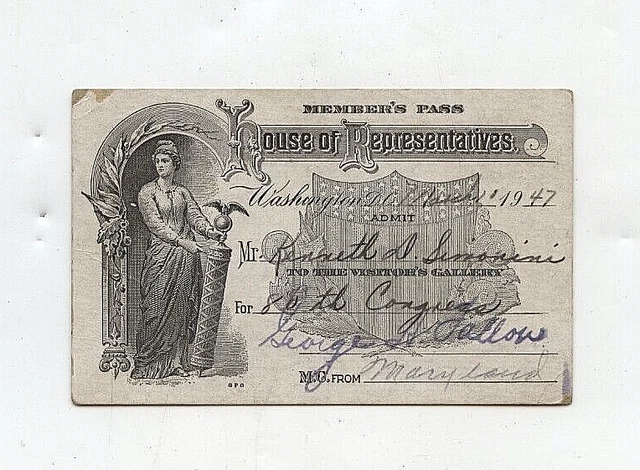 MEMBER'S PASS
House of Representatives.
Washington, D.C. March 1947
ADMIT
Mr. Kenneth D. Simonini
TO THE VISITOR'S GALLERY
For 80th Congress
George H. Fallon
M.C. FROM Maryland
GPO